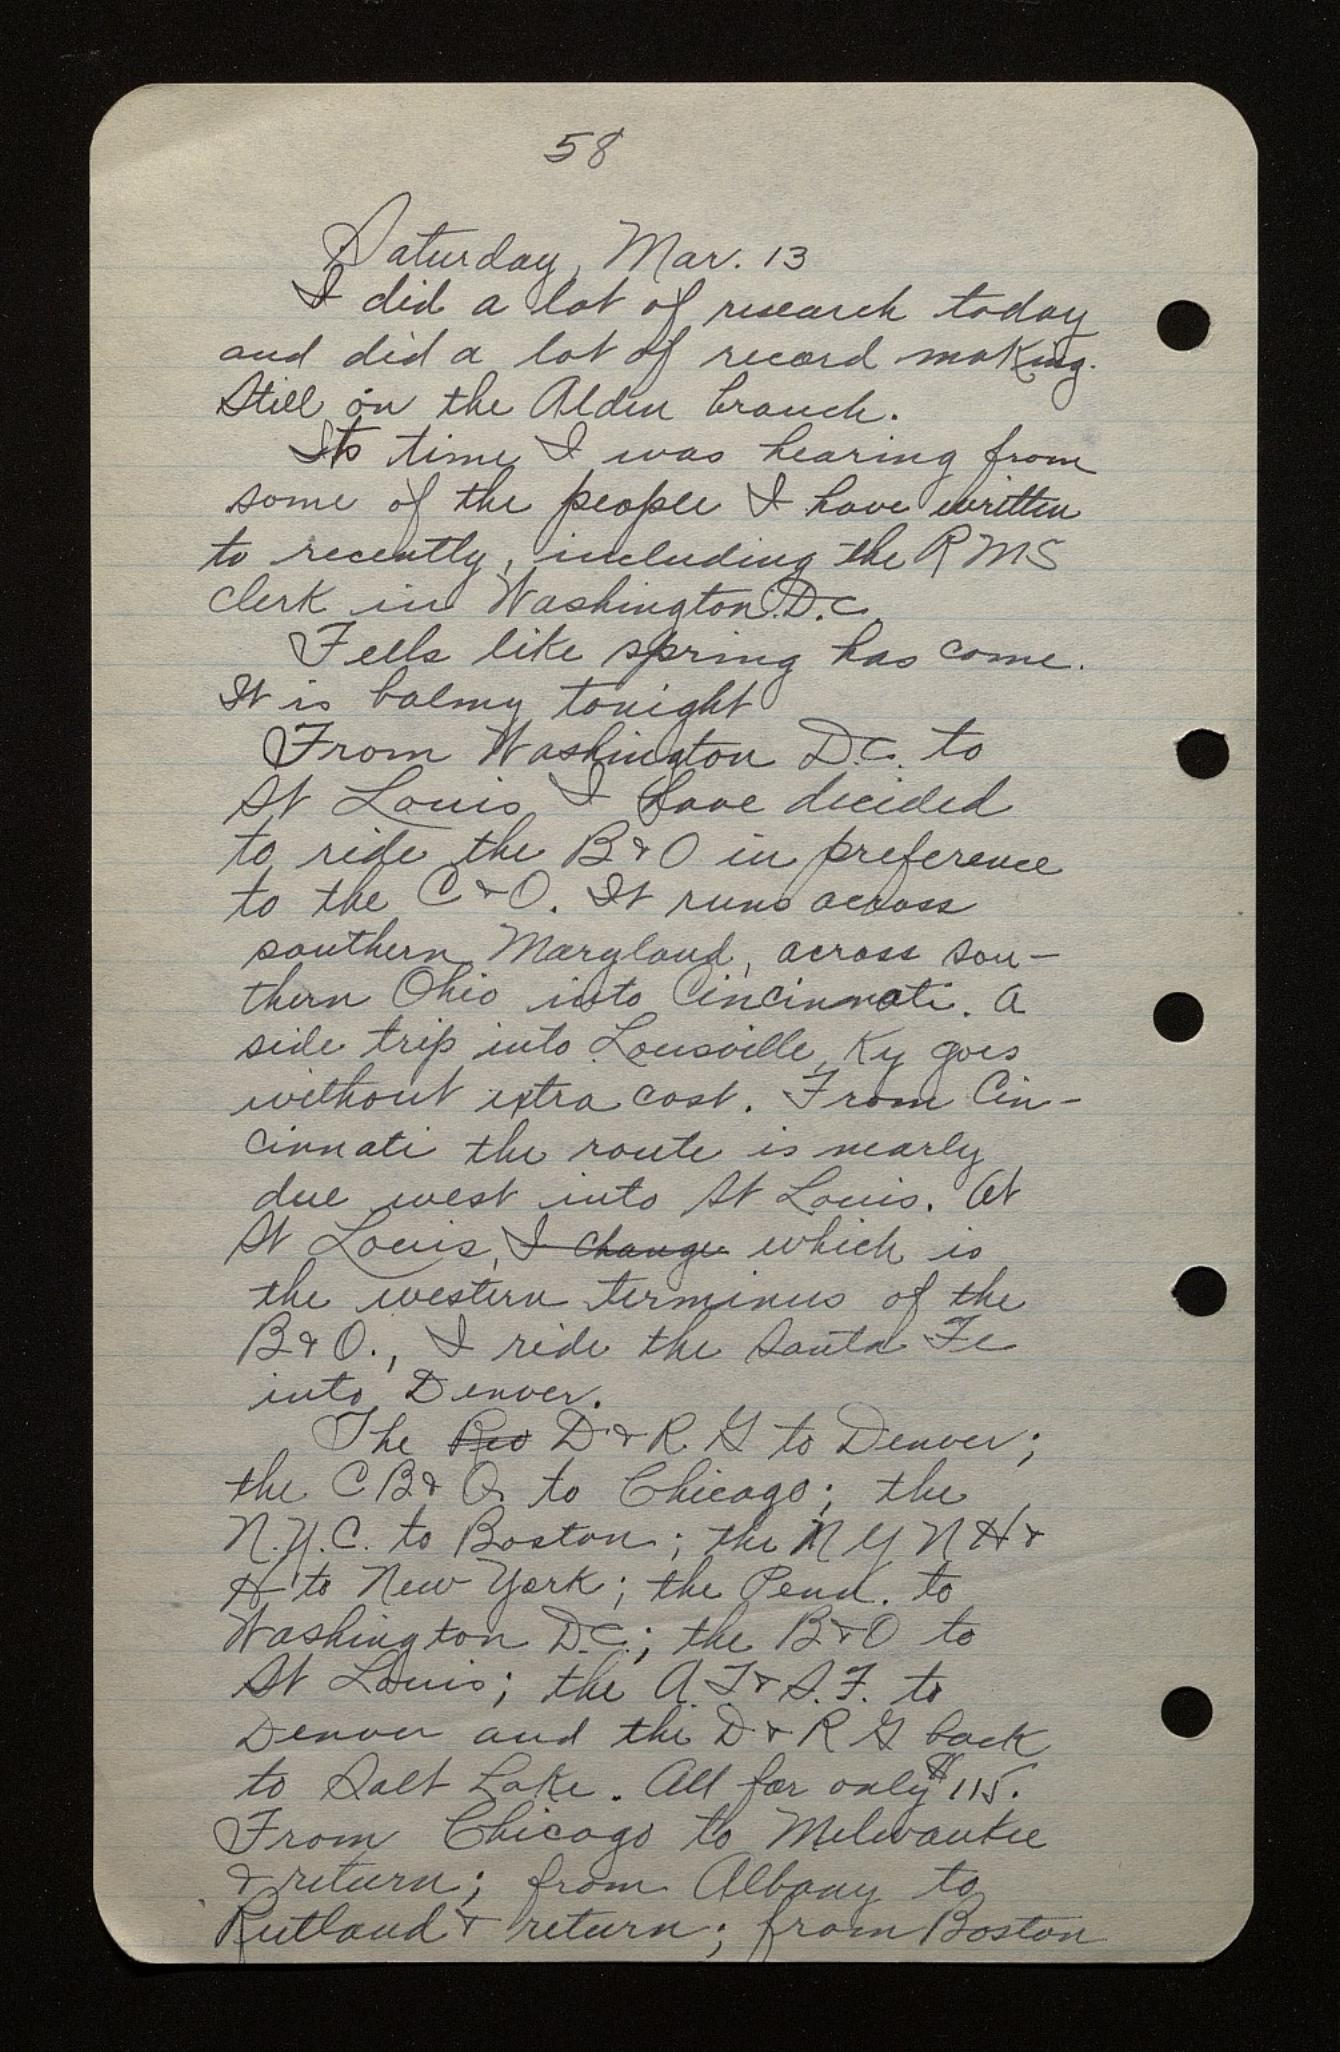 58
Saturday, Mar. 13
I did a lot of research today
and did a lot of record making.
Still on the Alden branch.
Its time I was hearing from
some of the people I have written
to recently, including the RMS
clerk in Washington D.C.
Feels like spring has come.
It is balmy tonight
From Washington D.C. to
St Louis I have decided
to ride the B & O in preference
to the C & O. It runs across
southern Maryland, across sou-
thern Ohio into Cincinnati. A
side trip into Louisville, Ky goes
without extra cost. From Cin-
cinnati the route is nearly
due west into St Louis. At
St Louis, I change which is
the western terminus of the
B & O., I ride the Santa Fe
into Denver.
The Rio D & R G to Denver;
the C B & Q. to Chicago; the
N.Y.C. to Boston; the N Y N H &
H to New York; the Penn. to
Washington D.C.; the B & O to
St Louis; the A. T & S. F. to
Denver and the D & R G back
to Salt Lake. All for only $115.
From Chicago to Milwaukee
& return; from Albany to
Rutland & return; from Boston